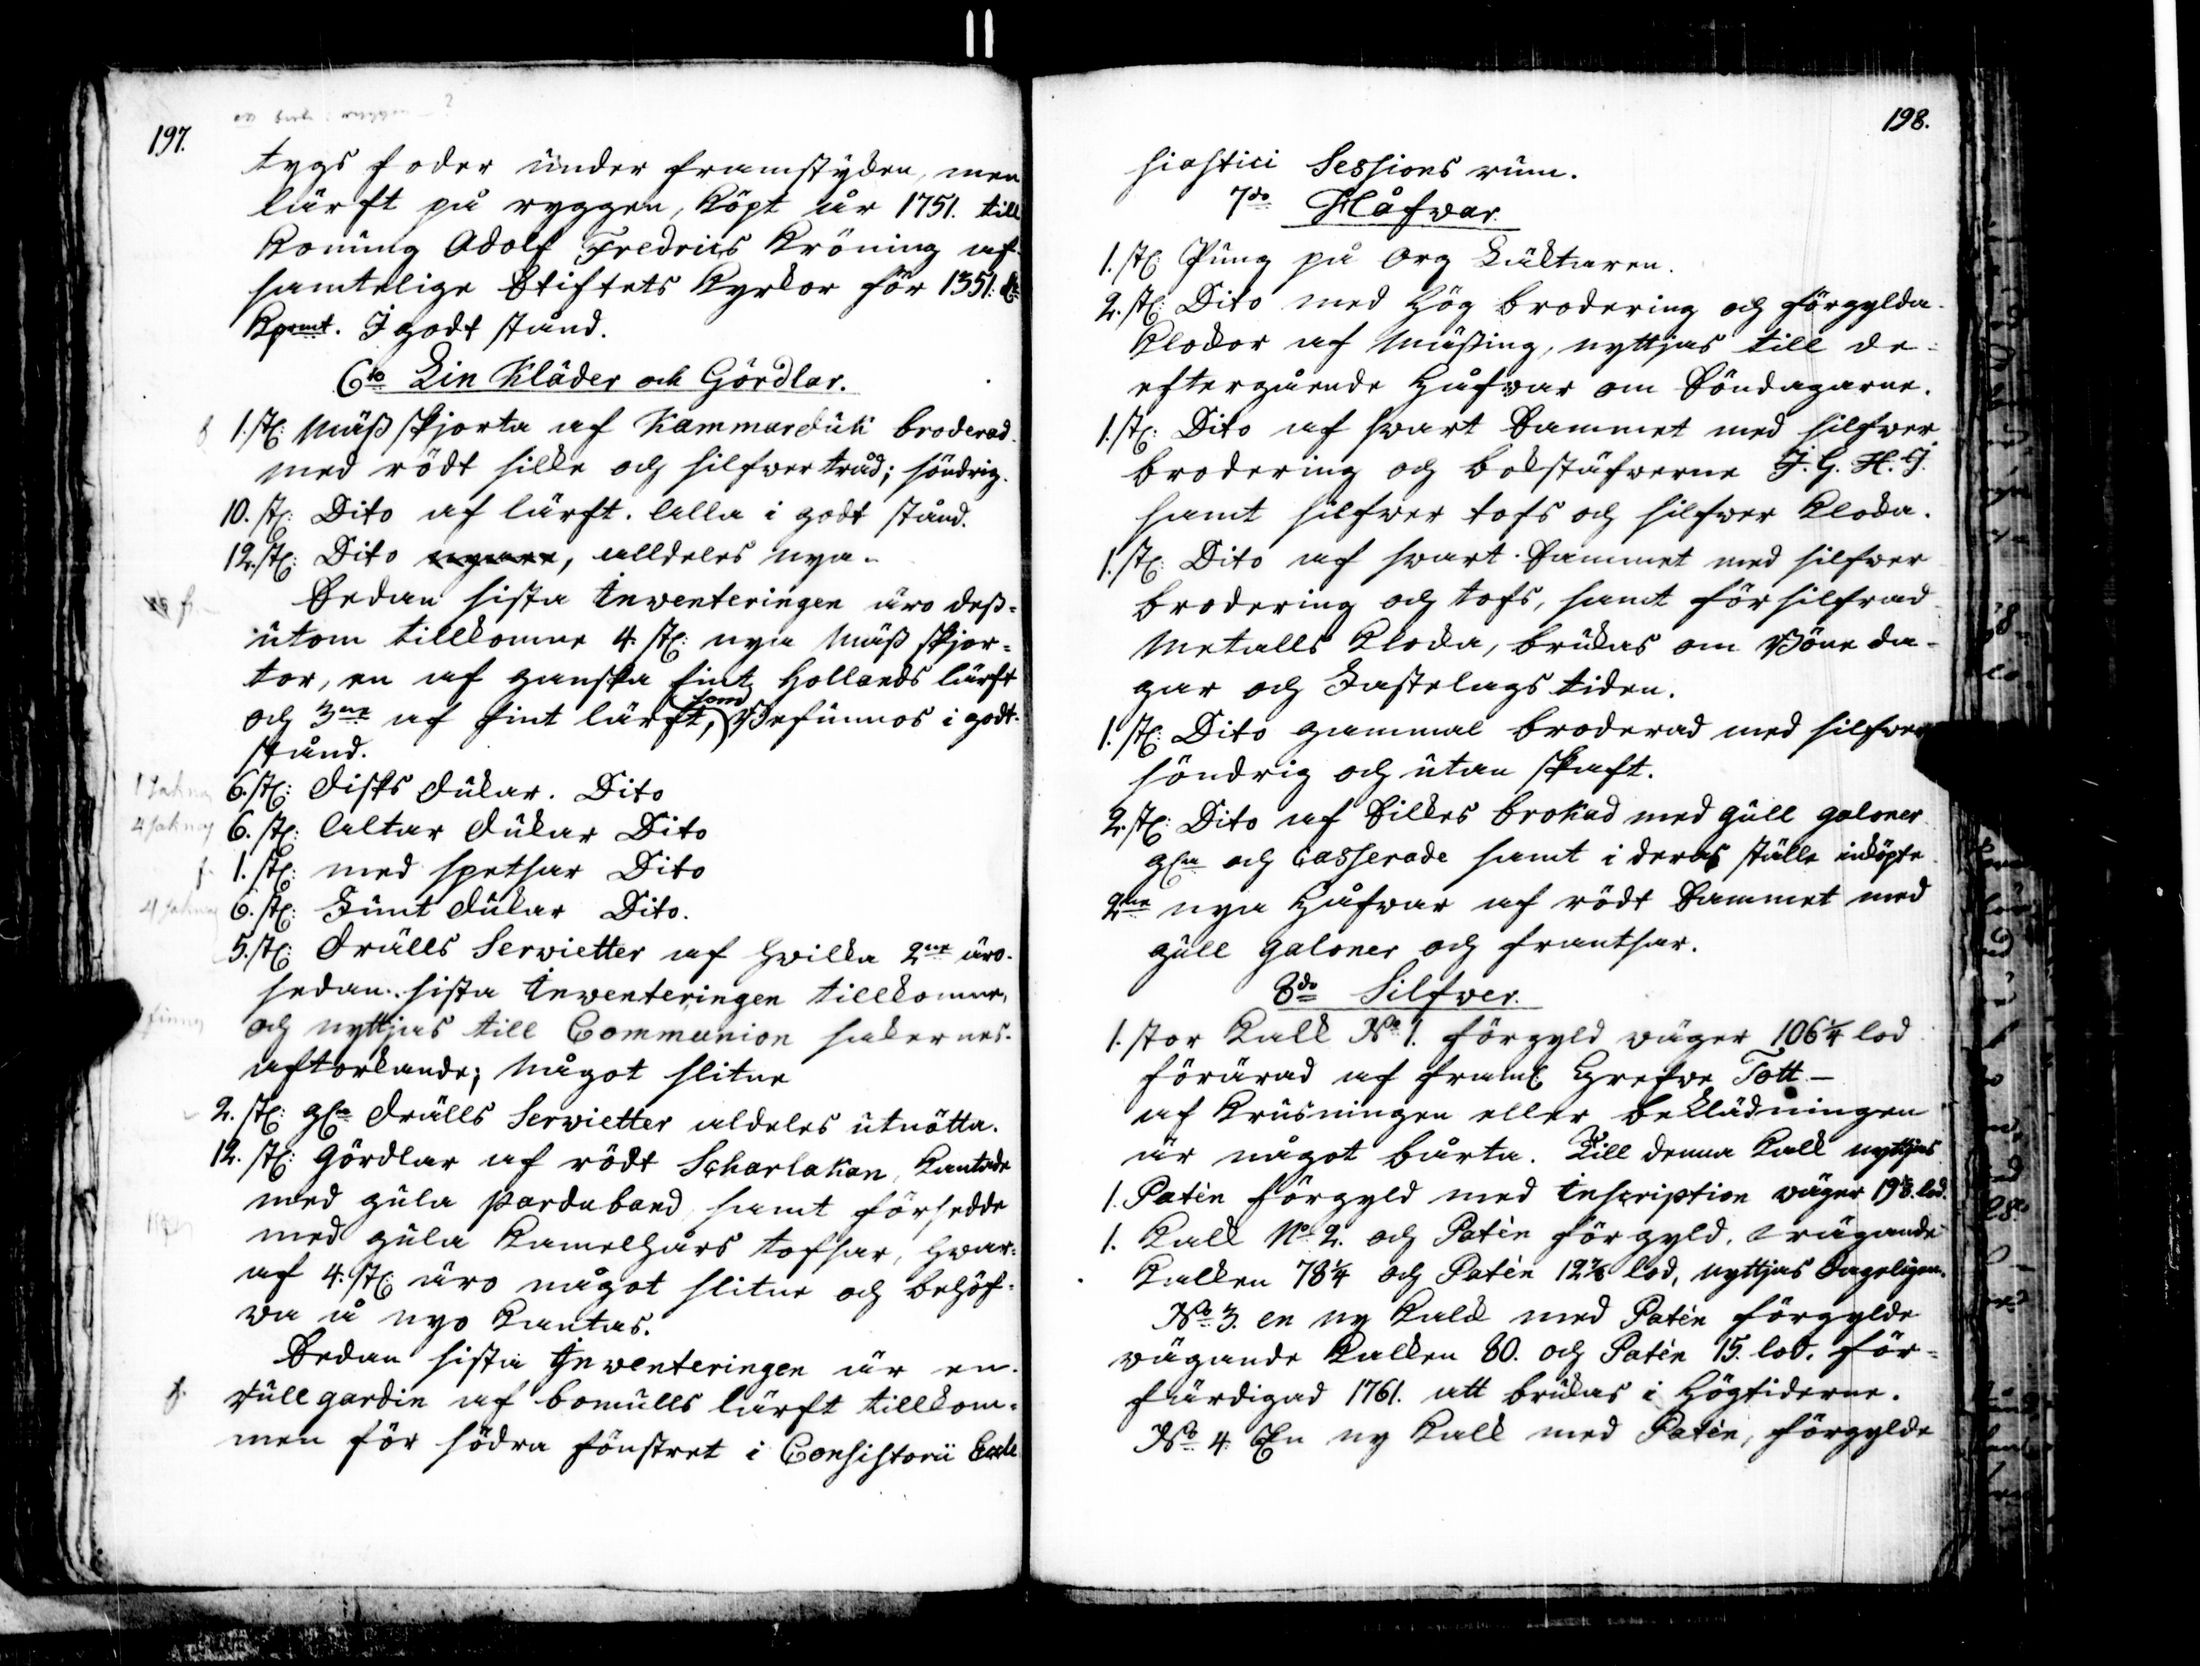 197.
tygs foder under framstyden, men
lärft på ryggen, köpt år 1751. till
Konung Adolf Fredrics Kröning af
samtelige Stiftets Kyrkor för 1351:
Kpmt. I godt stånd.
6to Lin Kläder och Gördlar.
1. st: Mäss skjorta af Kammarduk broderad
med rödt silke och silfwer tråd; söndrig.
10. st: Dito af lärft. Alla i godt stånd.
12. st: Dito nyare, alldeles nya.
Sedan sista Inwenteringen äro dess=
utom tillkomne 4. st: nya Mäss skjor=
tor, en af ganska fint Hollands lärft
och 3ne af fint lärft, som Befinnas i godt
stånd.
1 saknas 6. st: Disks dukar. Dito
4 saknas 6. st: Altar dukar Dito
f. 1. st: med spetsar Dito
4 saknas 6. st: Funt dukar Dito.
5. st: Drälls Servietter af hwilka 2ne äro
sedan sista Inwenteringen tillkomne,
och nyttjas till Communion sakernes
aftorkande; Något slitne
2. st: gla Drälls Servietter aldeles utnötta.
12. st: Gördlar af rödt Scharlakan, Kantade
med gula Pardaband samt försedde
med gula Kamelhårs tofsar, hwar=
af 4. st: äro något slitne och behöf=
va å nyo Kantas.
Sedan sista Inwenteringen är en
f. Rullgardin af bomulls lärft tillkom=
men för södra fönstret i Consistorii Eccle
198.
siastici Sessions rum.
7do Håfwar.
1. st: Pung på Org Läktaren.
2. st: Dito med Hög brodering och förgylda
Klockor af Mässing, nyttjas till de
eftergående Håfwar om Söndagarne.
1. st: Dito af swart Sammet med silfwer
brodering och bokstäfwerne J. G. H. J.
samt silfwer tofs och silfwer Klocka.
1. st: Dito af swart Sammet med silfwer
brodering och tofs, samt försilfrad
Metalls Klocka, brukas om Böne da=
gar och Fastelags tiden.
1. st: Dito gammal broderad med silfwer
söndrig och utan skaft.
2. st: Dito af Silkes brokad med Gull galoner
gla och Casserade samt i deras ställe inköpte
2ne nya Håfwar af rödt Sammet med
gull galoner och frantsar.
8do Silfwer.
1. stor Kalk No 1. förgyld wäger 106 1/4 lod
förärad af framl. Grefwe Tott.—
af Krusningen eller beklädningen
är något bårta. Till denna Kalk nyttjas
1. Patén förgyld med Inscription wäger 19 1/8. lod.
1. Kalk No 2. och Patén förgyld, wägande
Kalken 78 1/4 och Patén 12 7/8 lod, nyttjas Dageligen.
No 3. en ny Kalk med Patén förgylde
wägande Kalken 80. och Patén 15. lod. för=
färdigad 1761. att brukas i Högtiderne.
No 4. En ny Kalk med Patén, förgylde